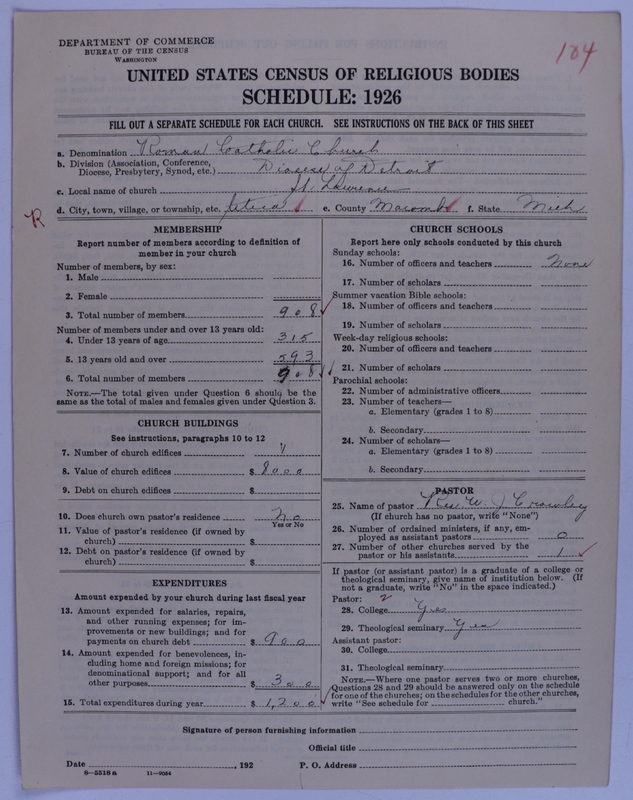 DEPARTMENT OF COMMERCE
BUREAU OF THE CENSUS
WASHINGTON
104
UNITED STATES CENSUS OF RELIGIOUS BODIES
SCHEDULE: 1926
FILL OUT A SEPARATE SCHEDULE FOR EACH CHURCH. SEE INSTRUCTIONS ON THE BACK OF THIS SHEET
a. Denomination Roman Catholic Church
b. Division (Association, Conference, Diocese, Presbytery, Synod, etc.) Diocese of Detroit
c. Local name of church St. Lawrence
R d. City, town, village, or township, etc. Utica e. County Macomb f. State Mich
MEMBERSHIP
Report number of members according to definition of
member in your church
Number of members, by sex:
1. Male
2. Female
3. Total number of members 908
Number of members under and over 13 years old:
4. Under 13 years of age 315
5. 13 years old and over 593
6. Total number of members 908
NOTE.—The total given under Question 6 should be the
same as the total of males and females given under Question 3.
CHURCH BUILDINGS
See instructions, paragraphs 10 to 12
7. Number of church edifices 1
8. Value of church edifices $ 8000
9. Debt on church edifices $
10. Does church own pastor's residence No
Yes or No
11. Value of pastor's residence (if owned by
church) $
12. Debt on pastor's residence (if owned by
church) $
EXPENDITURES
Amount expended by your church during last fiscal year
13. Amount expended for salaries, repairs,
and other running expenses; for im-
provements or new buildings; and for
payments on church debt $ 900
14. Amount expended for benevolences, in-
cluding home and foreign missions; for
denominational support; and for all
other purposes $ 300
15. Total expenditures during year $ 1,200
CHURCH SCHOOLS
Report here only schools conducted by this church
Sunday schools:
16. Number of officers and teachers None
17. Number of scholars
Summer vacation Bible schools:
18. Number of officers and teachers
19. Number of scholars
Week-day religious schools:
20. Number of officers and teachers
21. Number of scholars
Parochial schools:
22. Number of administrative officers
23. Number of teachers—
a. Elementary (grades 1 to 8)
b. Secondary
24. Number of scholars—
a. Elementary (grades 1 to 8)
b. Secondary
PASTOR
25. Name of pastor Rev. W. J Crowley
(If church has no pastor, write "None")
26. Number of ordained ministers, if any, em-
ployed as assistant pastors 0
27. Number of other churches served by the
pastor or his assistants 1
If pastor (or assistant pastor) is a graduate of a college or
theological seminary, give name of institution below. (If
not a graduate, write "No" in the space indicated.)
Pastor: 2
28. College Yes
29. Theological seminary Yes
Assistant pastor:
30. College
31. Theological seminary
NOTE.—Where one pastor serves two or more churches,
Questions 28 and 29 should be answered only on the schedule
for one of the churches; on the schedules for the other churches,
write "See schedule for church."
Signature of person furnishing information
Official title
Date , 192 P. O. Address
8—5518a 11—9064